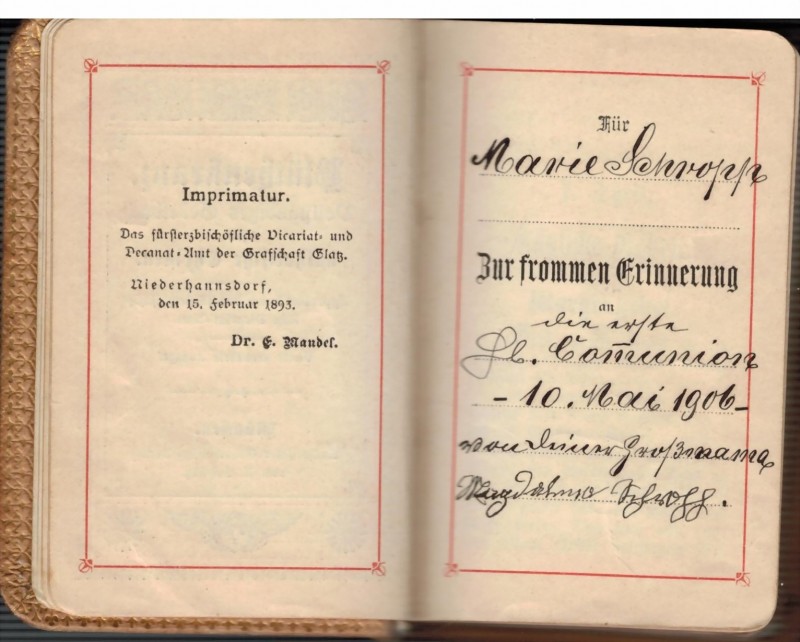 Imprimatur.
Das fürsterzbischöfliche Vicariat- und
Decanat-Amt der Grafschaft Glatz.
Niederhannsdorf,
den 15. Februar 1893.
Dr. E. Mandel.
Für
Marie Schropp
Zur frommen Erinnerung
an
die erste
Hl. Com̅union
- 10. Mai 1906 -
von Deiner Großmama
Magdalena Schropp.